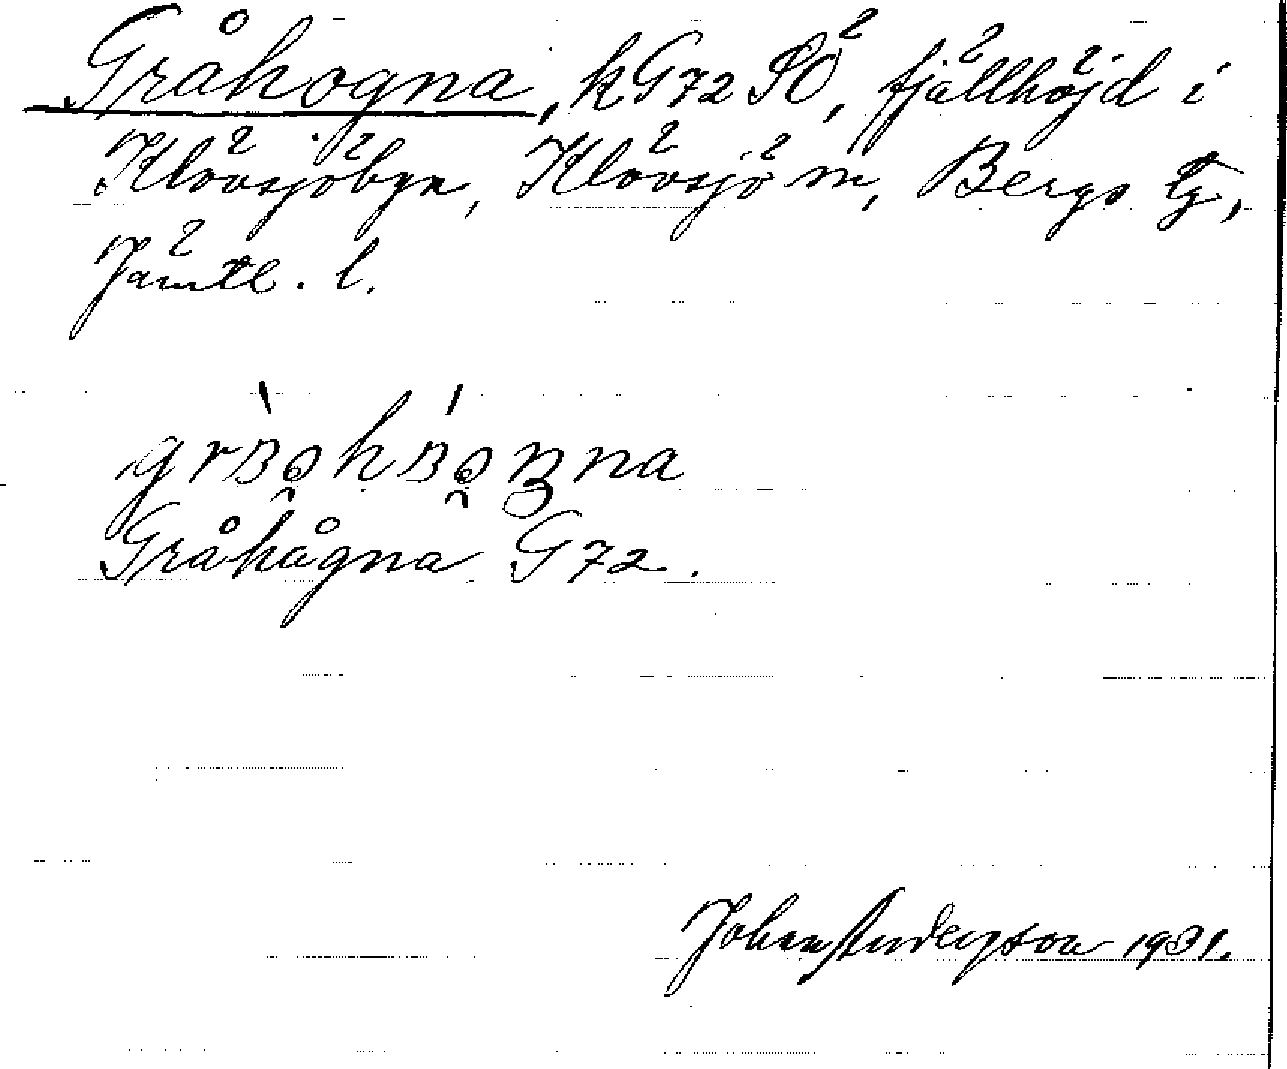 Gråhogna, kG72SÖ, fjällhöjd i
Klövsjöbyn, Klövsjö sn, Bergs tg,
Jämtl. l.
Gråhågna G72.
Johan Anderson 1931.